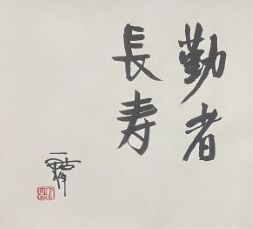 勤者
長寿